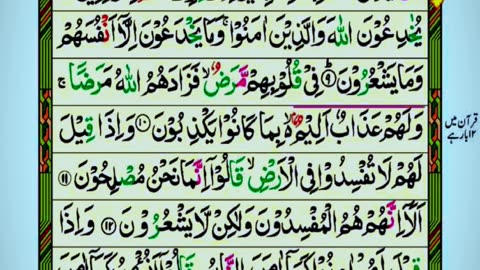 يُخٰدِعُوْنَ اللّٰهَ وَالَّذِيْنَ اٰمَنُوْا ۚ وَمَا يَخْدَعُوْنَ اِلَّاۤ اَنْفُسَهُمْ
وَمَا يَشْعُرُوْنَ ۹ فِيْ قُلُوْبِهِمْ مَّرَضٌ ۙ فَزَادَهُمُ اللّٰهُ مَرَضًا ۚ
وَلَهُمْ عَذَابٌ اَلِيْمٌۢ ۙ بِمَا كَانُوْا يَكْذِبُوْنَ ۱۰ وَاِذَا قِيْلَ
قرآن میں
۱۲ بار ہے
لَهُمْ لَا تُفْسِدُوْا فِي الْاَرْضِ ۙ قَالُوْۤا اِنَّمَا نَحْنُ مُصْلِحُوْنَ ۱۱
اَلَاۤ اِنَّهُمْ هُمُ الْمُفْسِدُوْنَ وَلٰكِنْ لَّا يَشْعُرُوْنَ ۱۲ وَاِذَا